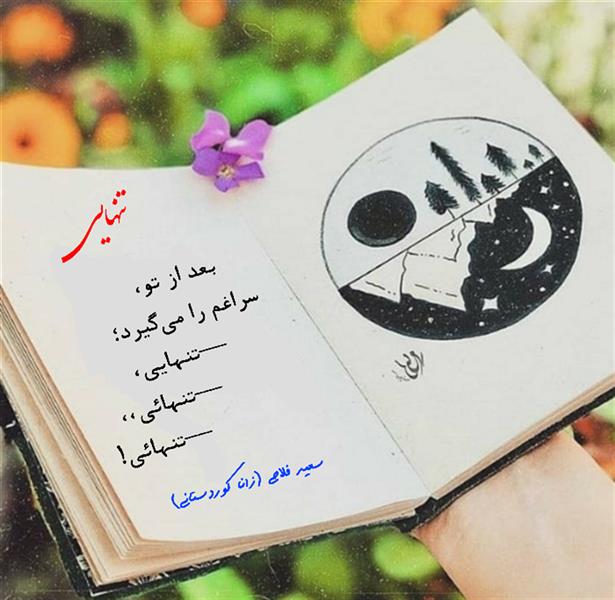 تنهایی
بعد از تو،
سراغم را می‌گیرد؛
—تنهایی،
—تنهائی،،
—تنهائی!
سعید فلاحی (زانا کوردستانی)